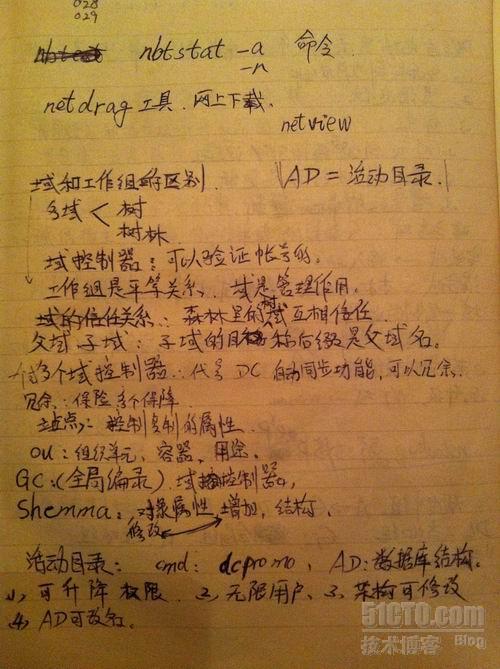 028
029
nbtstat -a 命令.
-n
netdrag 工具. 网上下载.
netview
域和工作组的区别.
AD = 活动目录.
多域 < 树
树林
域控制器: 可以验证帐号的.
工作组是平等关系. 域是管理作用.
域的信任关系: 森林里的树互相信任.
父域子域: 子域的名称后缀是父域名.
多个域控制器: 代号 DC 自动同步功能, 可以冗余.
冗余: 保险多个保障.
站点: 控制复制的属性.
OU: 组织单元, 容器, 用途.
GC: (全局编录). 域控制器,
Shemma: 对象属性, 增加, 结构.
修改
活动目录: cmd: dcpromo, AD: 数据库结构.
1, 可升降权限. 2, 无限用户, 3, 架构可修改
4, AD可改名.
51CTO.com
技术博客 Blog